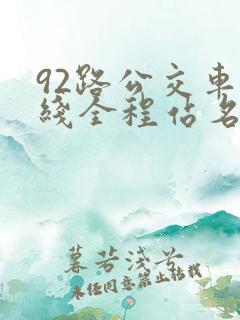 92路公交车
线全程站名
暮若浅兮
未经同意禁止转载